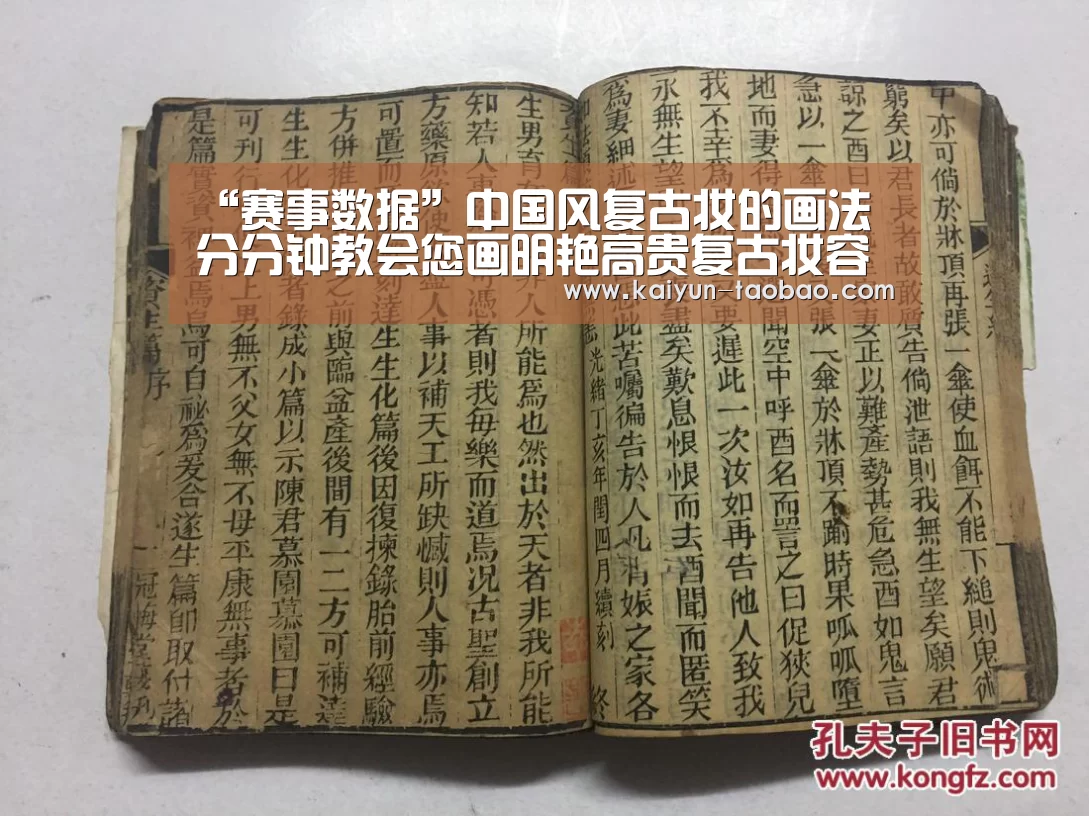 “赛事数据”中国风复古妆的画法
分分钟教会您画明艳高贵复古妆容
www.kaiyun-taobao.com
甲亦可倘於牀頂再張一傘使血餌不能下縋則鬼術
窮矣以君長者故敢質告倘泄語則我無生望矣願君
諒之酉曰 妻正以難產勢甚危急酉如鬼言
急以一傘 張一傘於牀頂不踰時果呱呱墮
地而妻得 聞空中呼酉名而詈之曰促狹兒
我不幸爲 要遲此一次汝如再告他人致我
永無生望 盡矣歎息恨恨而去酉聞而匿笑
爲妻細述 此苦囑徧告於人凡有娠之家各
光緒丁亥年閏四月續刻 終
生男育 非人所能爲也然出於天者非我所能
知若人事 憑者則我毋樂而道焉況古聖創立
方藥原 人事以補天工所缺憾則人事亦焉
可置而 刻達生生化篇後因復揀錄胎前經驗
方併推 之前與臨盆產後間有一二方可補達
生生化 者錄成小篇以示陳君慕園慕園曰是
可刊行 上男無不父女無不母平康無事者於
是篇實資 益焉烏可自祕爲爰合遂生篇即取付諸
資生篇序 一 冠悔堂
孔夫子旧书网
www.kongfz.com